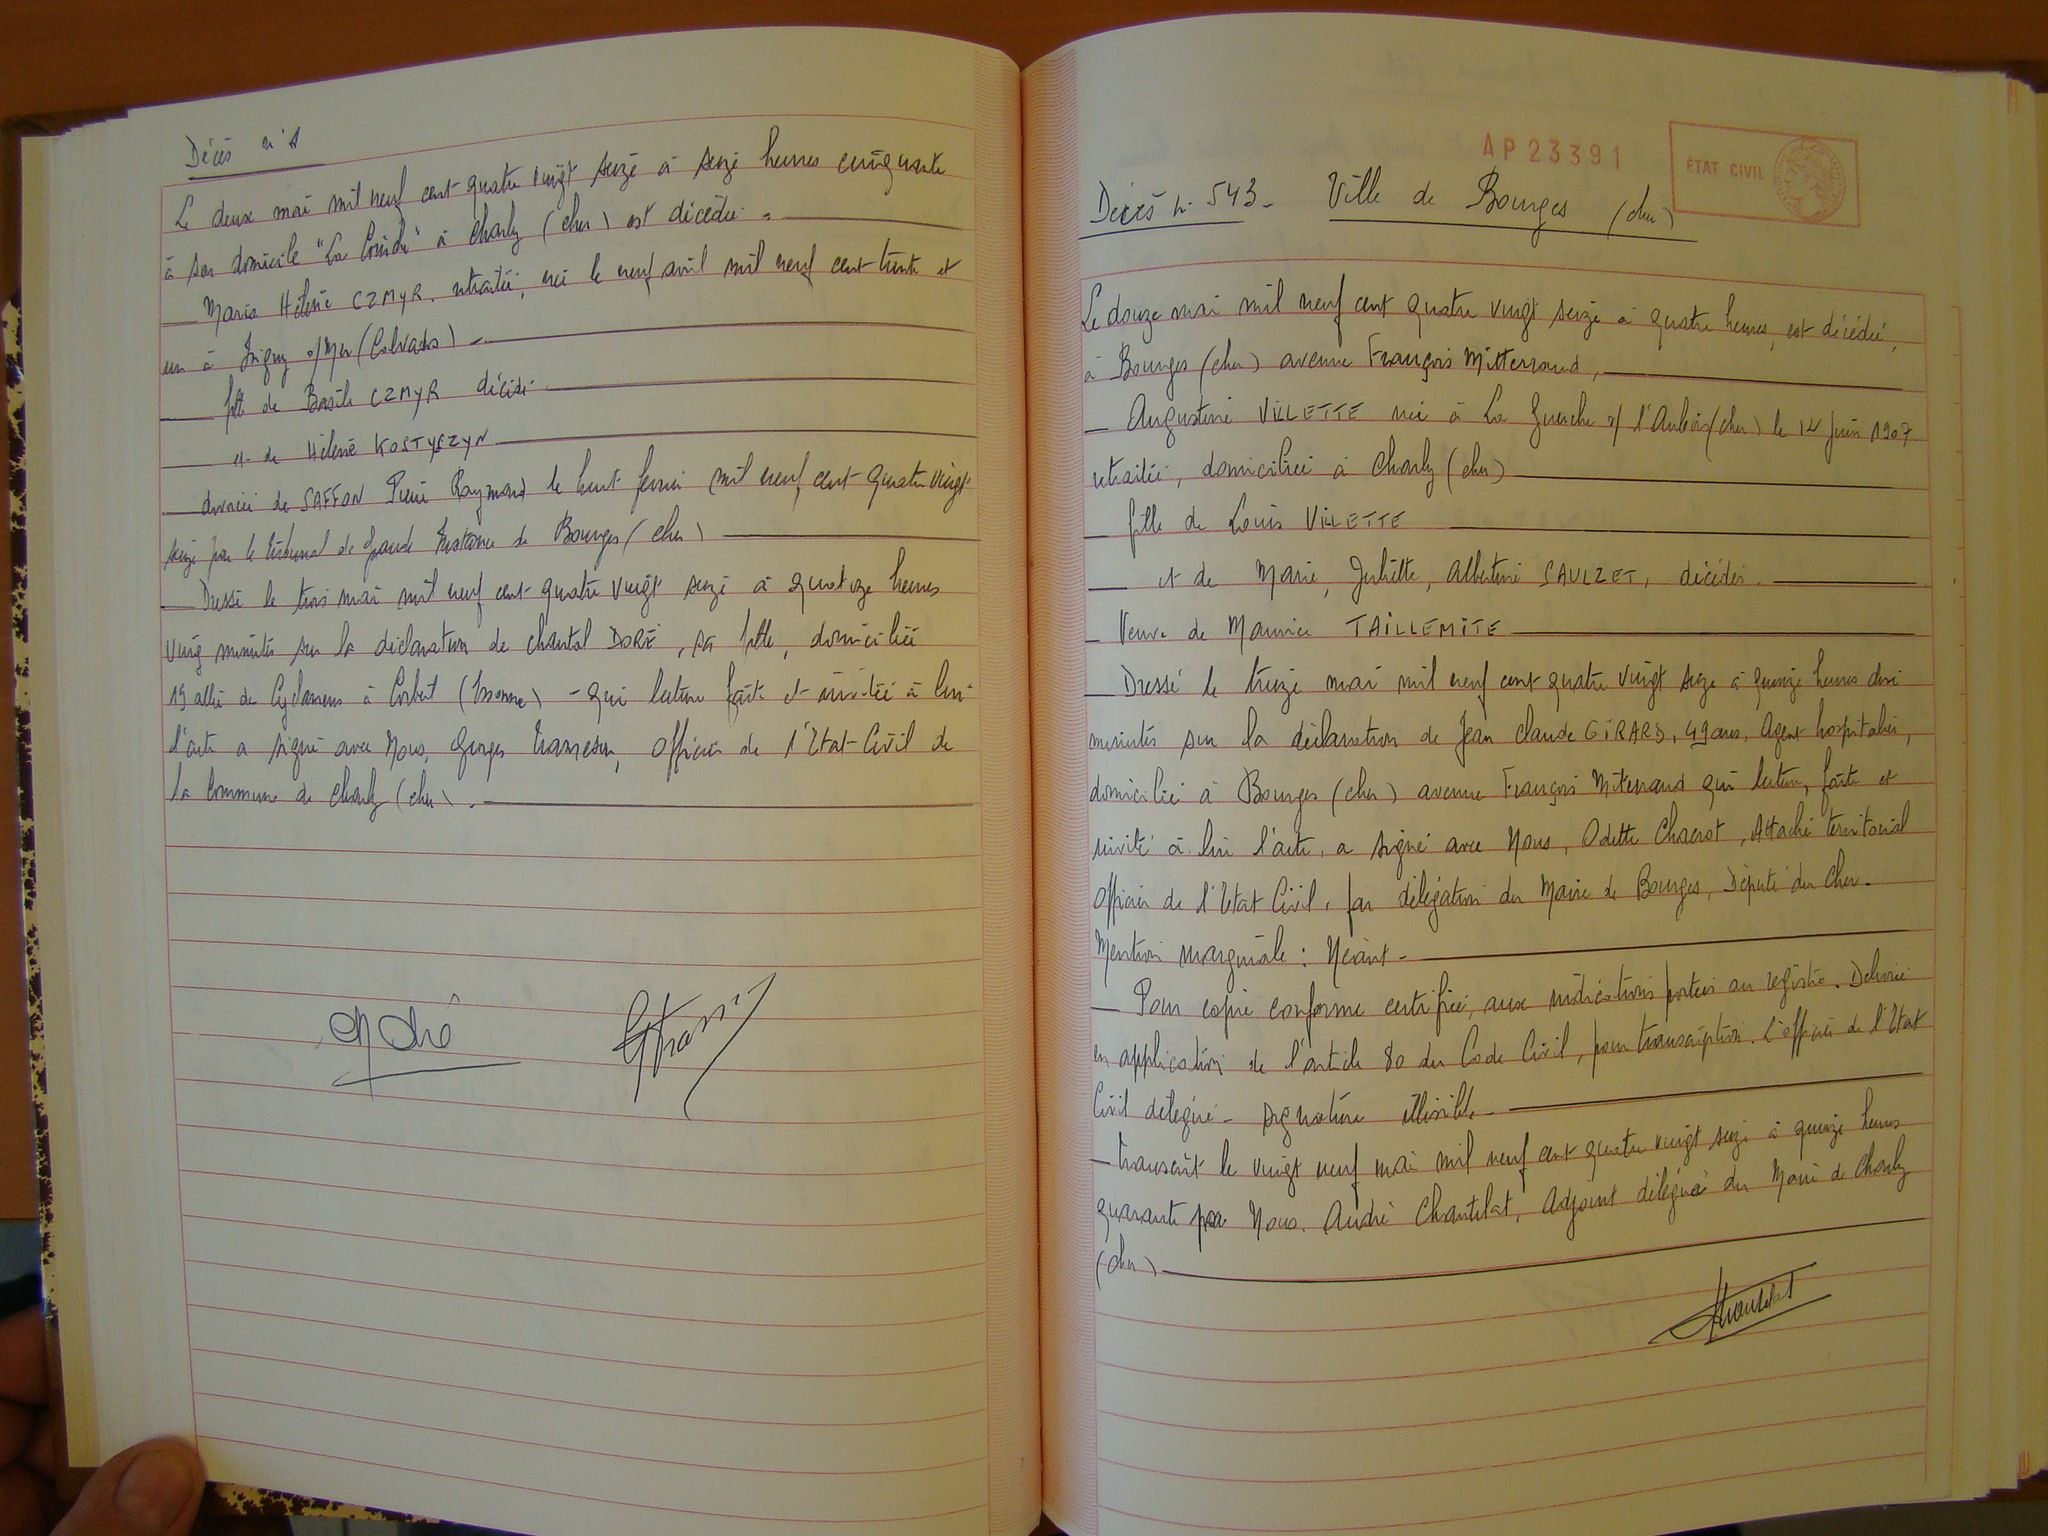 Décès n° 1
Le deux mai mil neuf cent quatre vingt seize à seize heures cinquante
à son domicile "La " à Charly (Cher) est décédée
Maria Hélène CZMYR, retraitée, née le neuf avril mil neuf cent trente et
un à s/Mer (Calvados)
fille de Basile CZMYR décédé
et de Hélène KOSTYSZYN
divorcée de SAFFON Pierre Raymond le huit février mil neuf cent quatre vingt
seize par le tribunal de Grande Instance de Bourges (Cher)
Dressé le trois mai mil neuf cent quatre vingt seize à quatorze heures
vingt minutes sur la déclaration de Chantal DORÉ, sa fille, domiciliée
19 allée de Cyclamens à Corbeil (Essonne) - qui lecture faite et invitée à lire
l'acte a signé avec Nous, Georges , officier de l'Etat-Civil de
la Commune de Charly (Cher).
AP23391
ÉTAT CIVIL
Décès n° 543 - Ville de Bourges (Cher)
Le douze mai mil neuf cent quatre vingt seize à quatre heures, est décédée,
à Bourges (Cher) avenue François Mitterrand,
Augustine VILLETTE née à La Guerche s/ l'Aubois (Cher) le 1er Juin 1907
retraitée, domiciliée à Charly (Cher)
fille de Louis VILLETTE
et de Marie, Juliette, Albertine SAULZET, décédés
Veuve de Maurice TAILLEMITE
Dressé le treize mai mil neuf cent quatre vingt seize à quinze heures dix
minutes sur la déclaration de Jean Claude GIRARD, 49 ans, Agent hospitalier,
domicilié à Bourges (Cher) avenue François Mitterrand qui lecture, faite et
invité à lire l'acte, a signé avec Nous, Odette , Attaché territorial
Officier de l'Etat Civil, par délégation du Maire de Bourges, Député du Cher.
Mention marginale : Néant -
Pour copie conforme certifiée, aux indications portées au registre. Délivrée
en application de l'article 80 du Code Civil, pour transcription. L'officier de l'Etat
Civil délégué - signature illisible -
transcrit le vingt neuf mai mil neuf cent quatre vingt seize à quinze heures
quarante par Nous, André Chantelat, Adjoint délégué du Maire de Charly
(Cher)